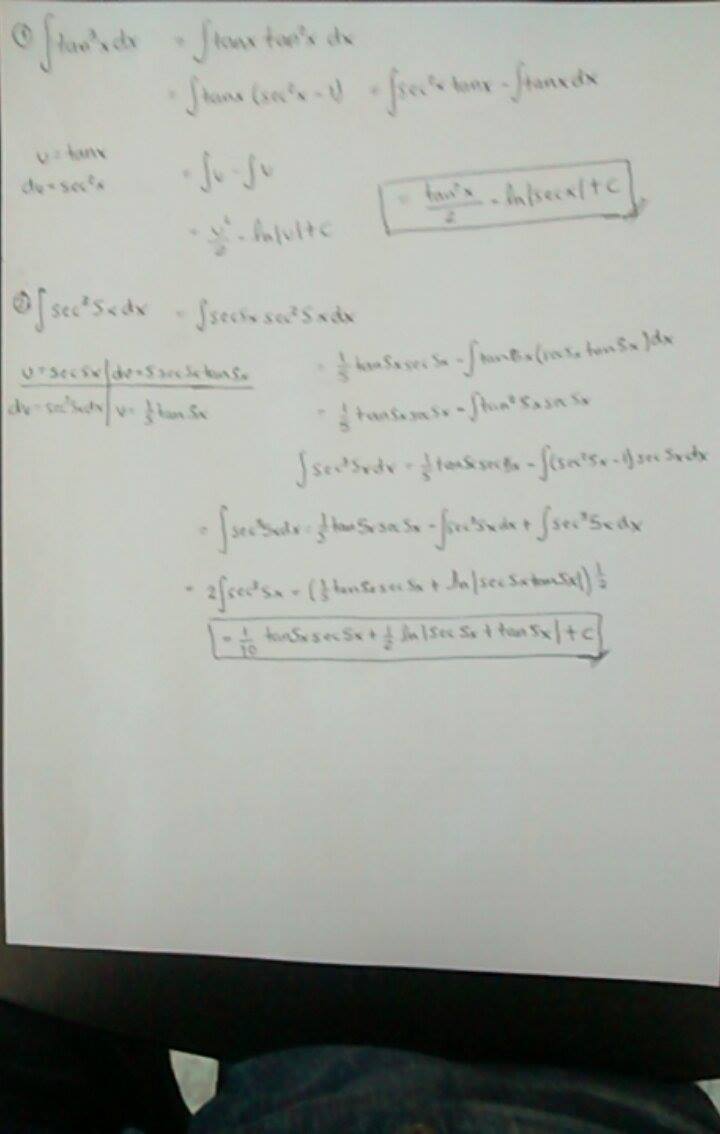 ① ∫tan³x dx = ∫tanx tan²x dx
= ∫tanx (sec²x - 1) = ∫sec²x tanx - ∫tanx dx
u = tanx
du = sec²x
= ∫u - ∫u
= u²/2 - ln|u| + C
= tan²x/2 - ln|secx| + C
② ∫sec³5x dx = ∫sec5x sec²5x dx
u = sec5x | du = 5 sec5x tan5x
dv = sec²5x dx | v = 1/5 tan5x
= 1/5 tan5x sec5x - ∫tan5x (sec5x tan5x) dx
= 1/5 tan5x sec5x - ∫tan²5x sec5x
∫sec³5x dx = 1/5 tan5x sec5x - ∫(sec²5x - 1) sec5x dx
= ∫sec³5x dx = 1/5 tan5x sec5x - ∫sec³5x dx + ∫sec 5x dx
= 2∫sec³5x = (1/5 tan5x sec5x + ln|sec5x tan5x|) 1/2
= 1/10 tan5x sec5x + 1/2 ln|sec5x + tan5x| + C